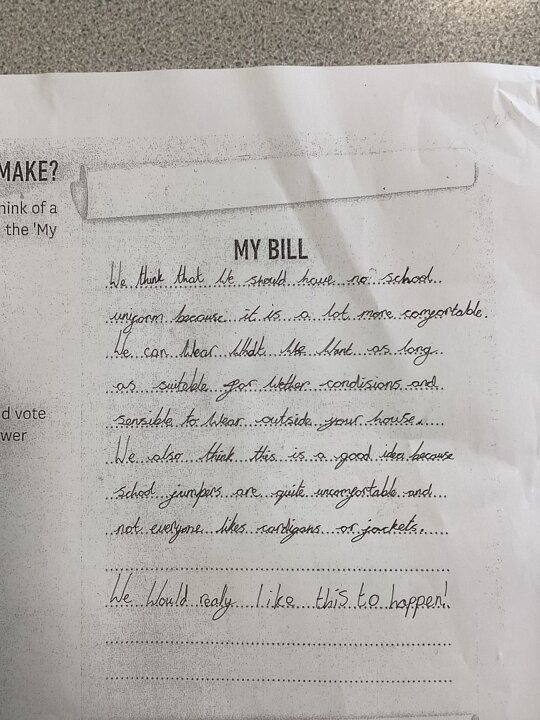 MAKE?
hink of a
the 'My
MY BILL
We think that We should have no school
uniform because it is a lot more comfortable.
We can Wear What We Want as long
as suiteble for Wether condisions and
d vote
sensible to Wear outside your house.
wer
We also think this is a good idea because
school jumpers are quite uncomfortable and
not everyone likes cardigans or jackets.
We Would really like this to happen!